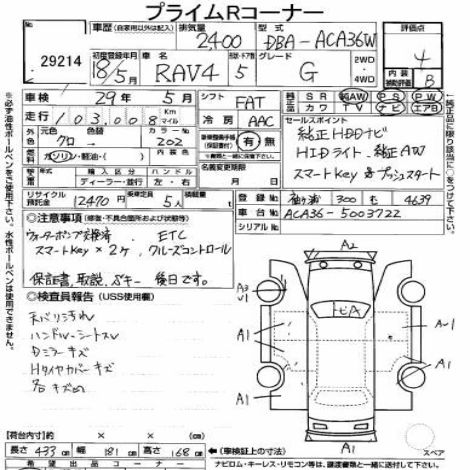 プライムRコーナー
29214
車歴 (自家用以外は記入)
排気量 2400
型式 DBA-ACA36W
評価点 4
初度登録年月 18/5月
車名 RAV4
ドア数 5
グレード G
2WD・4WD
内装補助評価 B
車検 29年 5月
シフト FAT
純正品 SR AW PS PW
カワ TV ナビ エアB
走行 103,008 Km マイル
冷房 AAC
セールスポイント
純正HDDナビ
HIDライト 純正AW
スマートKey & プッシュスタート
外元色 クロ
色替
カラーNo 202
燃料 ガソリン・軽油・( )
車検整備手帳(保証書) 有・無
名義変更期限
年 月 日
輸入区分 ディーラー・並行
ハンドル 左・右
リサイクル預託金 12470円
乗車定員 5人
積載量 t
登録No. 300 も 4639
車台No. ACA36-5003722
シリアルNo.
注意事項 (修復・不具合箇所および状態)
ウォーターポンプ交換済 ETC
スマートKey×2ケ クルーズコントロール
保証書、取説、スペアキー 後日です。
検査員報告 (USS使用欄)
天バリ汚れ
ハンドル・シートスレ
Dミラーキズ
Hタイヤカバーキズ
各キズ凹
A2
A3
A1
A1
A1
A1
A1
スペア
[荷台内寸] 長さ × 幅 × 高さ (cm)
長さ 433cm 幅 181cm 高さ 168cm
(車検証上の寸法)
希望出品コーナー
ナビロム・キーレス・リモコン等は、譲渡書類と一緒に送付して下さい。
※必ず油性ボールペンをご使用下さい。水性ボールペンは使用できません。